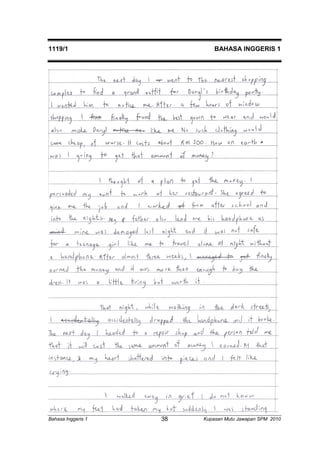 1119/1 BAHASA INGGERIS 1
The next day I went to the nearest shopping
complex to find a grand outfit for Daryl's birthday party.
I wanted him to notice me. After a few hours of window
shopping I finally found the best gown to wear and would
also make Daryl like me. No such clothing would
come cheap, of course. It costs about RM 500. How on earth
was I going to get that amount of money?
I thought of a plan to get the money. I
persuaded my aunt to work at her restaurant. She agreed to
give me the job and I worked from after school and
into the nights. My father also lend me his handphone as
mine was damaged last night and it was not safe
for a teenage girl like me to travel alone at night without
a handphone. After almost three weeks, I finally
earned the money and it was more than enough to buy the
dress. It was a little tiring but worth it.
That night, while walking in the dark street,
I accidentally dropped the handphone and it broke.
The next day I headed to a repair shop and the person told me
that it will cost the same amount of money I earned. At that
instance, my heart shattered into pieces and I felt like
crying.
I walked away in grief. I do not know
where my feet had taken my but suddenly I was standing
Bahasa Inggeris 1 38 Kupasan Mutu Jawapan SPM 2010